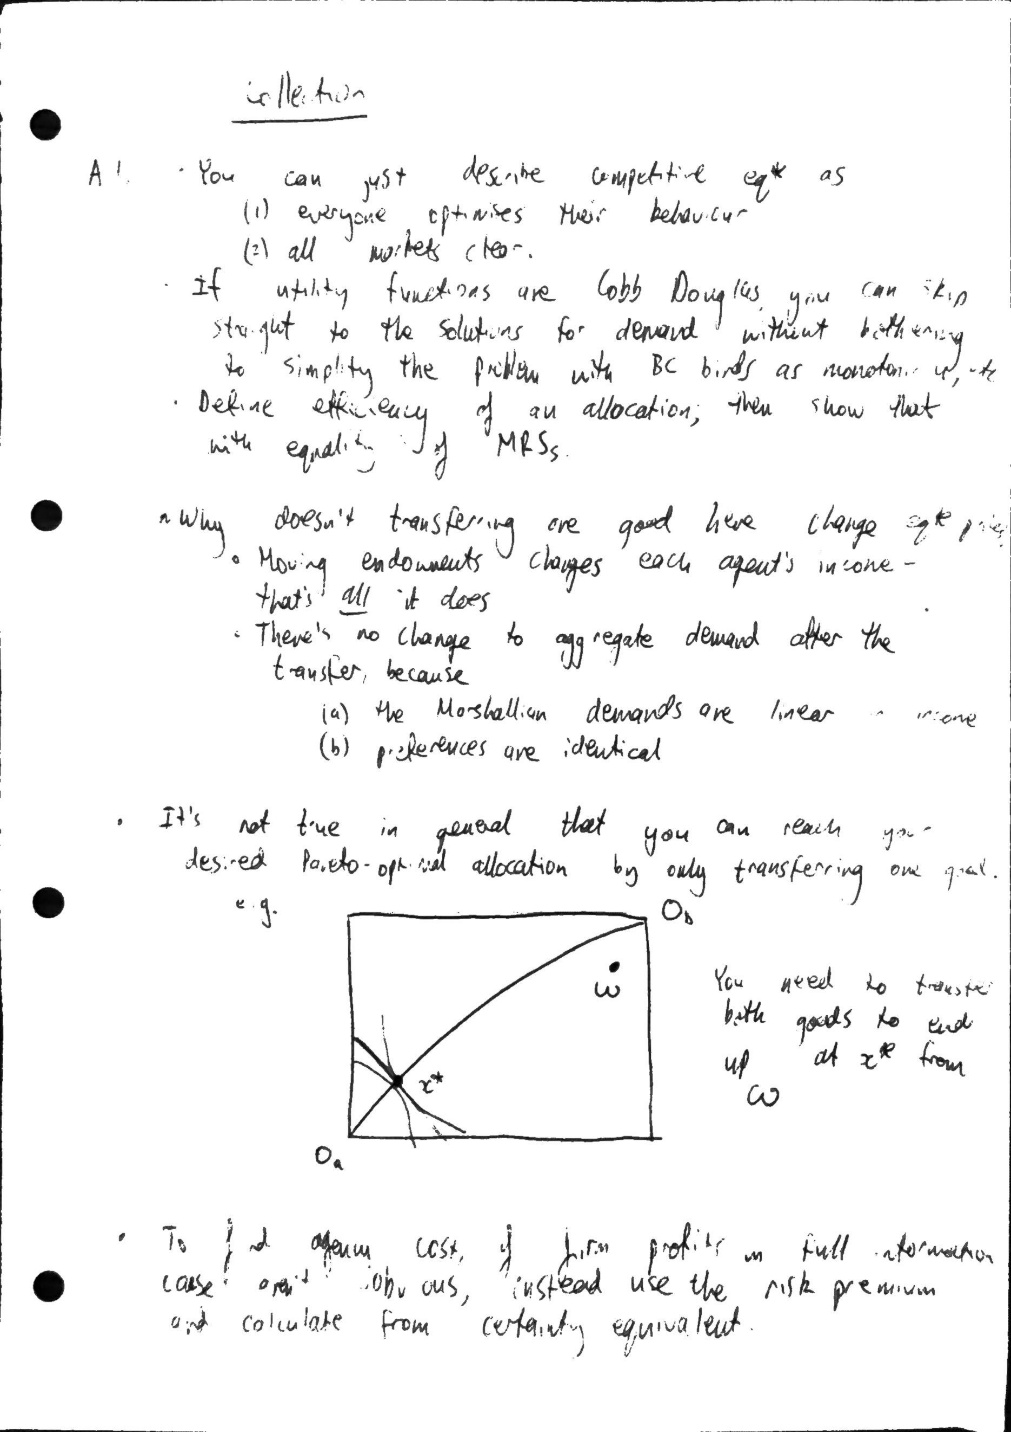 Collection
A1. · You can just describe competitive eq* as
(1) everyone optimises their behaviour
(2) all markets clear.
· If utility functions are Cobb Douglas, you can skip
straight to the solutions for demand without bothering
to simplify the problem with BC binds as monotonic u, etc
· Define efficiency of an allocation, then show that
with equality of MRSs.
· Why doesn't transferring one good here change eq*
· Moving endowments changes each agent's income -
that's all it does
· There's no change to aggregate demand after the
transfer, because
(a) the Marshallian demands are linear in income
(b) preferences are identical
· It's not true in general that you can reach your
desired Pareto-optimal allocation by only transferring one good.
e.g.
O_b
ω
You need to transfer
both goods to end
up at x* from
ω
x*
O_a
· To find agency cost, if firm profits in full information
case aren't obvious, instead use the risk premium
and calculate from certainty equivalent.